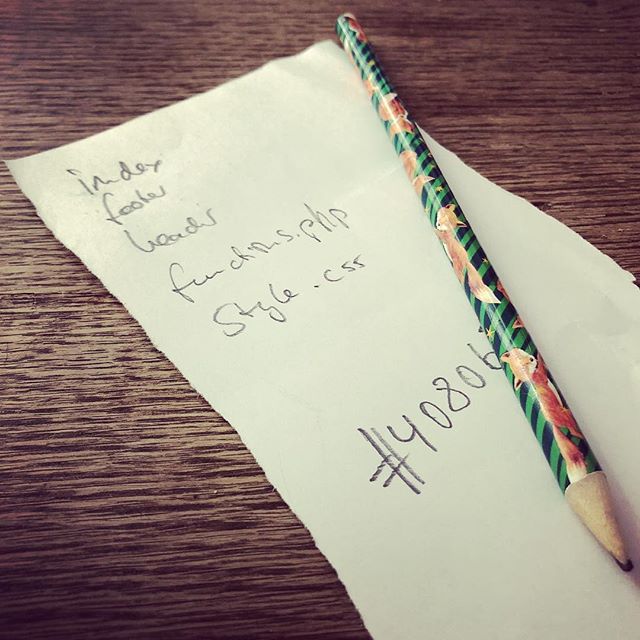 index
footer
header
functions.php
Style.css
#40806